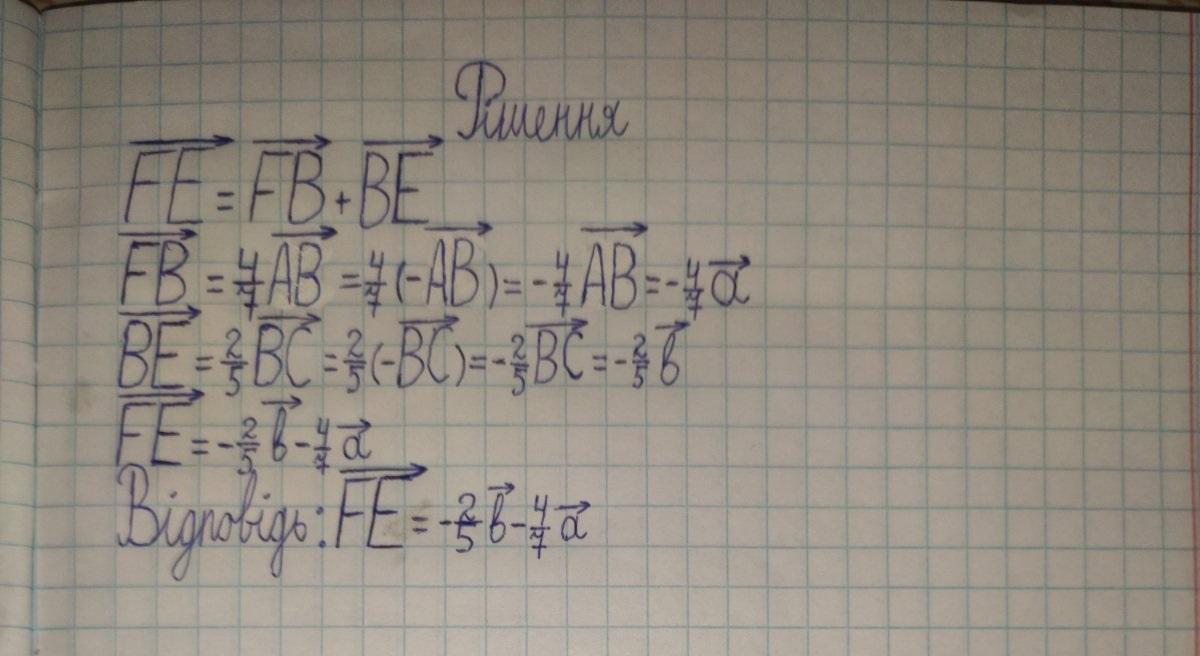 Рішення
FE = FB + BE
FB = 4/7 AB = 4/7 (-AB) = -4/7 AB = -4/7 a
BE = 2/5 BC = 2/5 (-BC) = -2/5 BC = -2/5 b
FE = -2/5 b - 4/7 a
Відповідь: FE = -2/5 b - 4/7 a